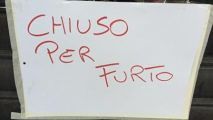 CHIUSO
PER
FURTO